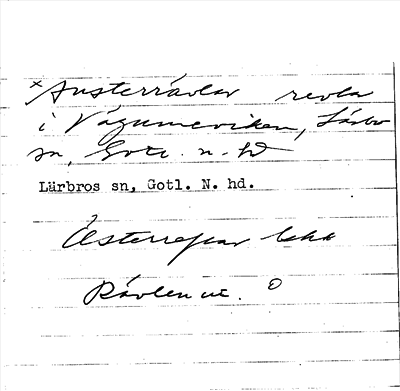 × Austerrävlar revlar
i Vägumeviken, Lärbro
sn, Gotl. n. hd
Lärbros sn, Gotl. N. hd.
Österrevlar
Rävlen